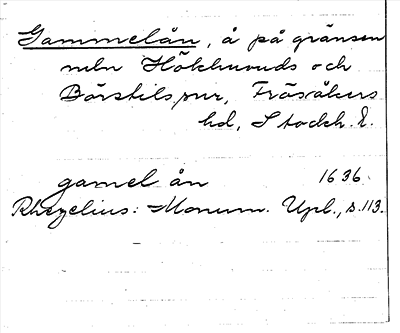 Gammelån, å på gränsen
mln Hökhuvuds och
Börstils snr, Frösåkers
hd, Stockh. l.
gamel ån 1636.
Rhezelius: Monum. Upl., s. 113.